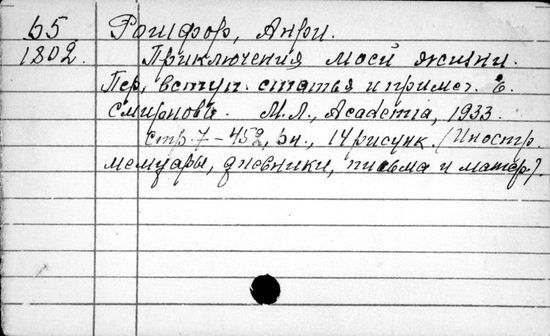 b5 Рошфор, Анри.
1802. Приключения моей жизни.
Пер., вступ. статья и примеч. Е.
Смирнова. М.Л., Academia, 1933.
стр. 7-452, вн., 14 рисунк. (Иностр.
мемуары, дневники, письма и матер.).